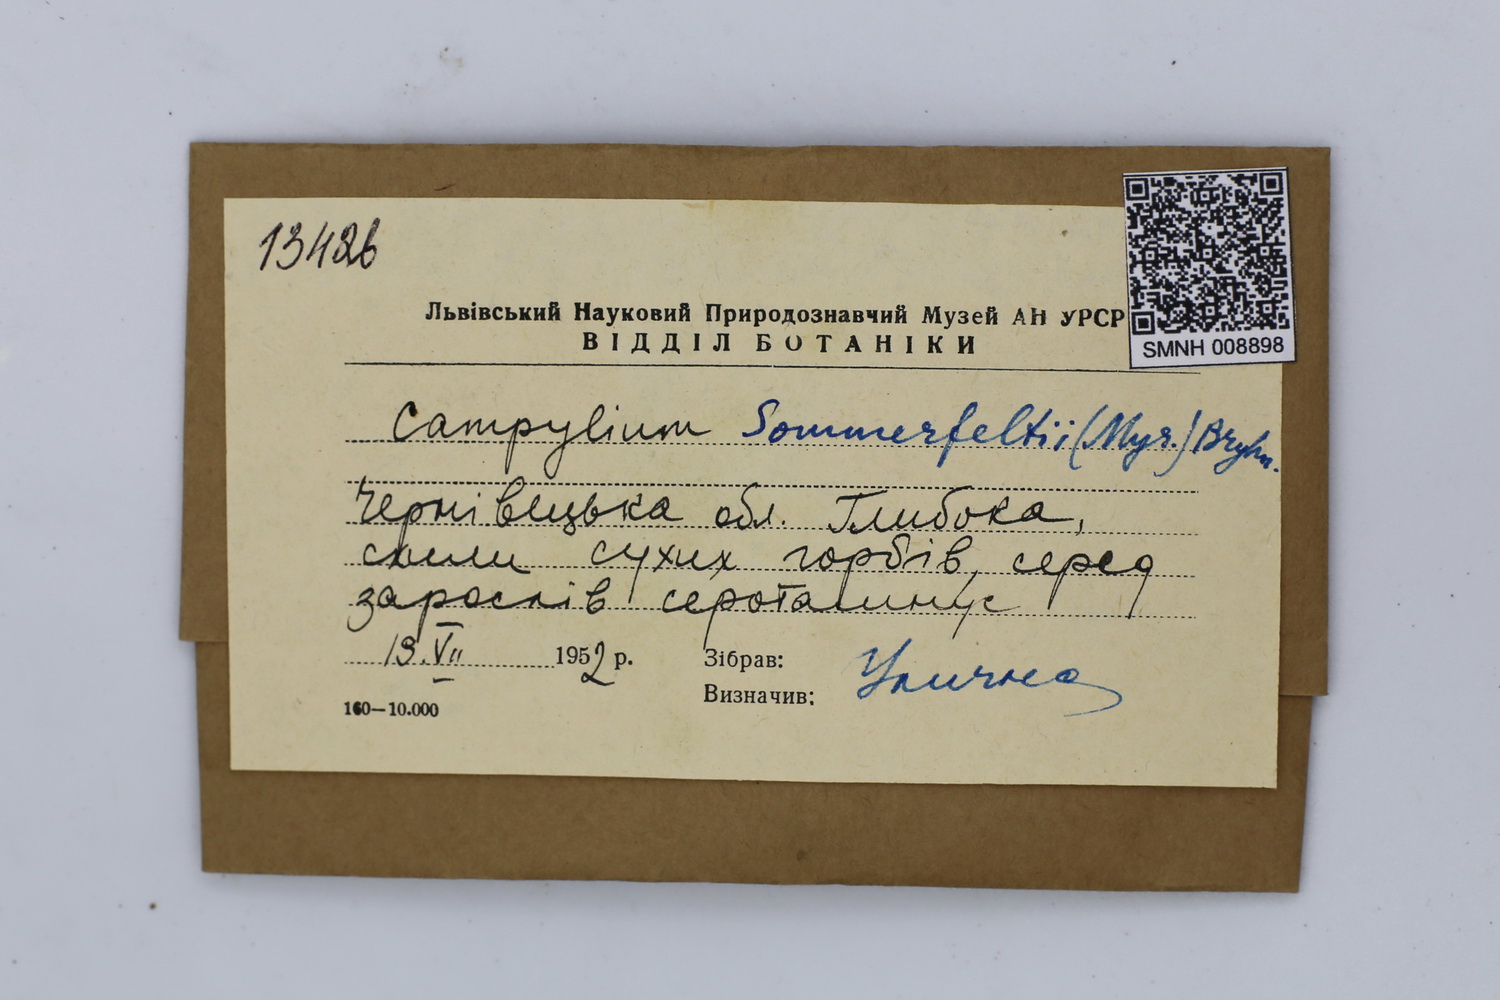 13426
Львівський Науковий Природознавчий Музей АН УРСР
ВІДДІЛ БОТАНІКИ
SMNH 008898
Campylium Sommerfeltii (Myr.) Bryhn.
Чернівецька обл. Глибока,
схили сухих горбів, серед
зарослів
13.VII 1952 р.
Зібрав:
Визначив: Улична
160—10.000